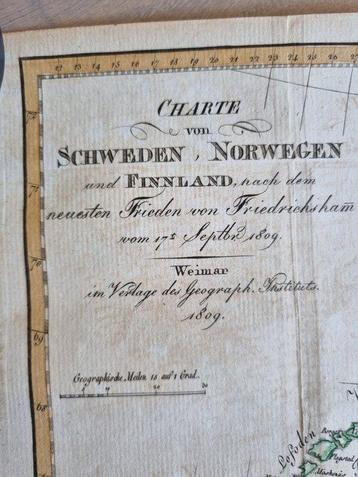 12 13 14 15 16 17 18 19 20 21 22 23 24 25 26 27
CHARTE
von
SCHWEDEN, NORWEGEN
und FINNLAND, nach dem
neuesten Frieden von Friedrichsham̄
vom 17t. Septbr. 1809.
Weimar
im Verlage des Geograph. Instituts.
1809.
72
71
70
69
68
Geographische Meilen 15 auf 1 Grad.
Lofoden